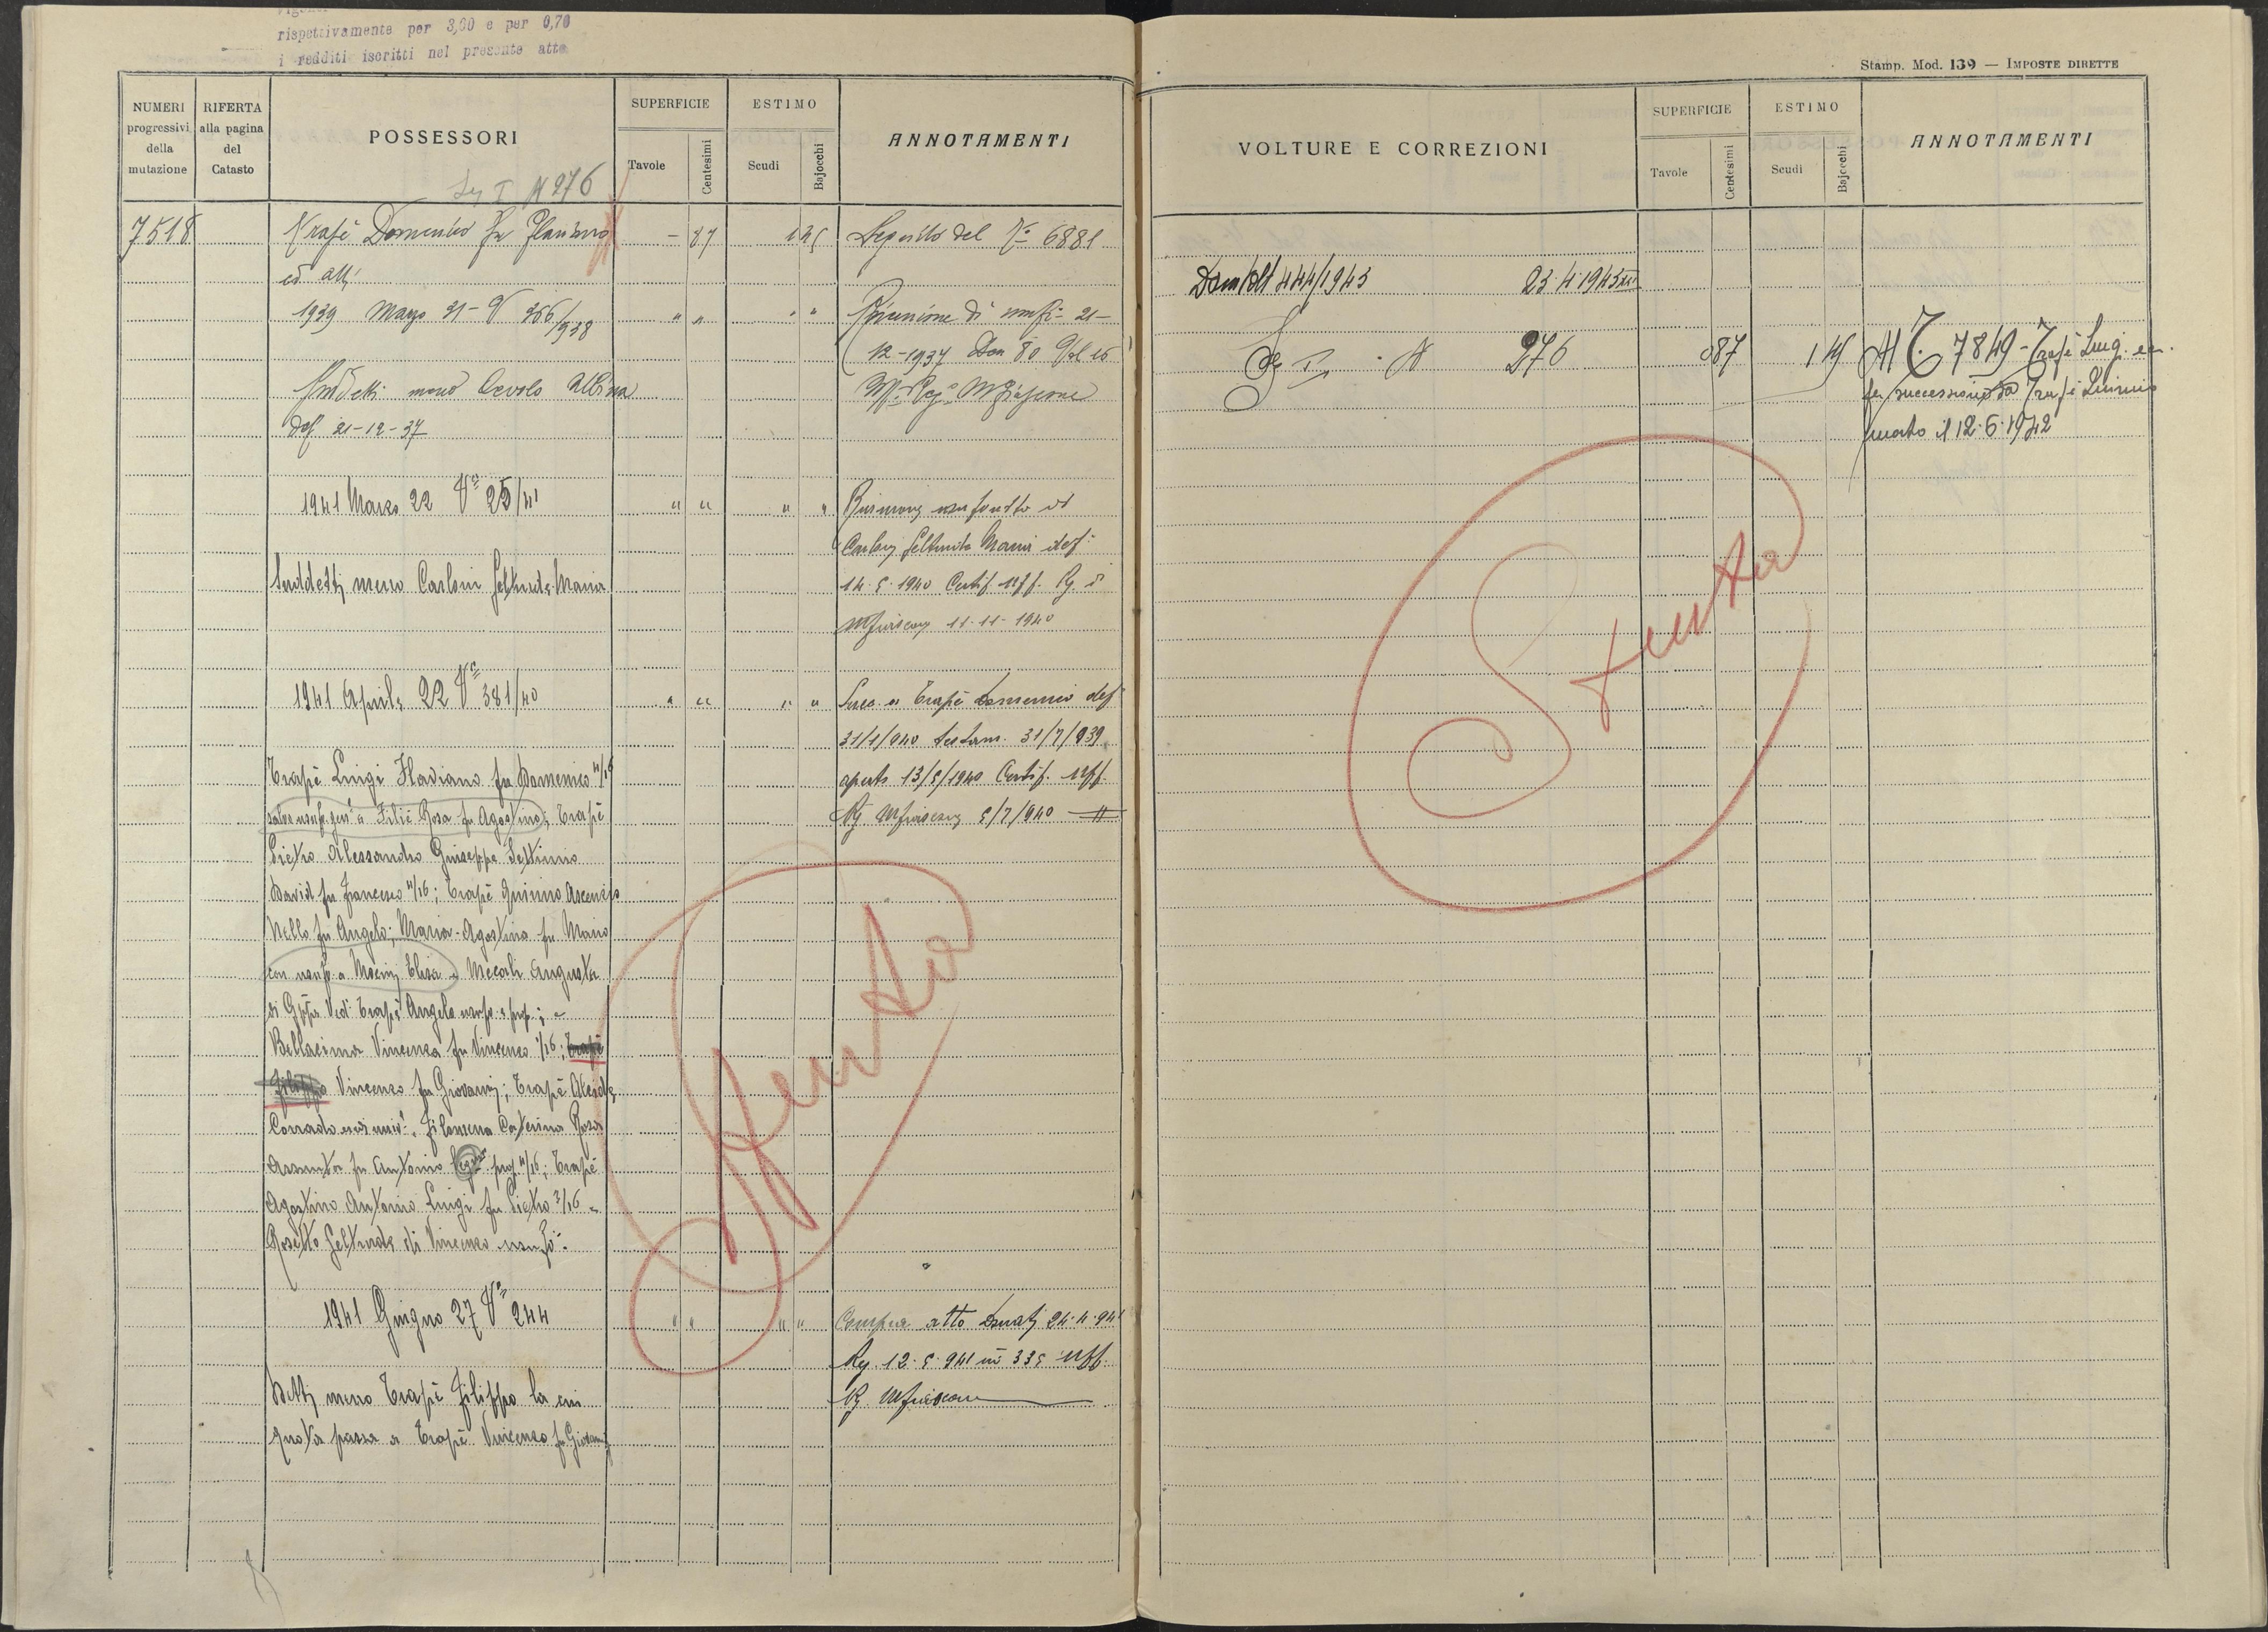 rispettivamente per 3,60 e per 0,70
i redditi iscritti nel presente atto
NUMERI progressivi della mutazione
RIFERTA alla pagina del Catasto
POSSESSORI
SUPERFICIE
Tavole
Centesimi
ESTIMO
Scudi
Bajocchi
ANNOTAMENTI
N 276
7518
Trapè Domenico fu Flaviano
- 87
Seguito del N° 6881
ed altri
1939 Marzo 31 - V 366/1938
" "
" "
Riunione di usuf° 21-
12-1937 Den 80 Vol 16
Suddetti meno Cervolo Albina
def 21-12-37
1941 Marzo 22 V° 25/41
" "
" "
Riunione usufrutto di
Carloni Geltrude Maria def
14.5.1940 Certif. Uff. Rg di
11-11-1940
Suddetti meno Carloni Geltrude Maria
1941 Aprile 22 V° 381/40
" "
" "
Succ. a Trapè Domenico def
31/1/940 testam. 31/7/939
aperto 13/5/1940 Certif. Uff.
Rg 5/7/940
Trapè Luigi Flaviano fu Domenico 4/16
salvo usuf. gen° a Filiè Rosa fu Agostino; Trapè
Pietro Alessandro Giuseppe Settimio
David fu Francesco 4/16; Trapè Quirino Ascenzio
Nello fu Angelo; Maria-Agostina fu Mario
con usuf. a Elisa e Mecali Augusta
di Trapè Angelo usuf. e prop.; e
Bellacima Vincenza fu Vincenzo 1/16; Trapè
Filippo Vincenzo fu Giovanni; Trapè Alcide
Corrado Filomena Caterina Rosa
Assunta fu Antonio prop. 4/16; Trapè
Agostino Antonio Luigi fu Pietro 3/16 e
Rosetto Geltrude di Vincenzo usuf°.
1941 Giugno 27 V° 244
" "
" "
Compra atto Donati 24.4.941
Rg. 12.5.941 n° 335 Uff.
Rg.
Detti meno Trapè Filippo la cui
quota passa a Trapè Vincenzo fu Giovanni
Spenta
Stamp. Mod. 139 — IMPOSTE DIRETTE
VOLTURE E CORREZIONI
SUPERFICIE
Tavole
Centesimi
ESTIMO
Scudi
Bajocchi
ANNOTAMENTI
444/1943
23.4.1943 XXI
N 276
087
Al 7849 - Trapè Luigi ec.
per successione da Trapè Quirino
morto il 12.6.1942
Spenta